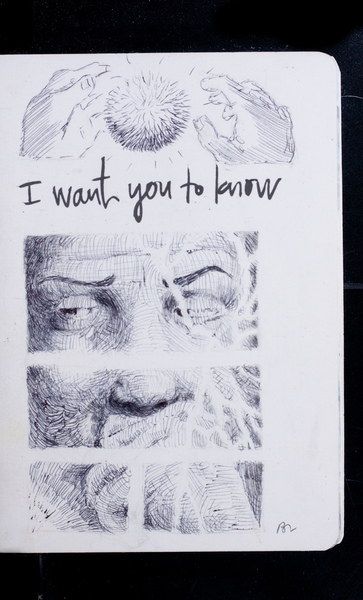 I want you to know